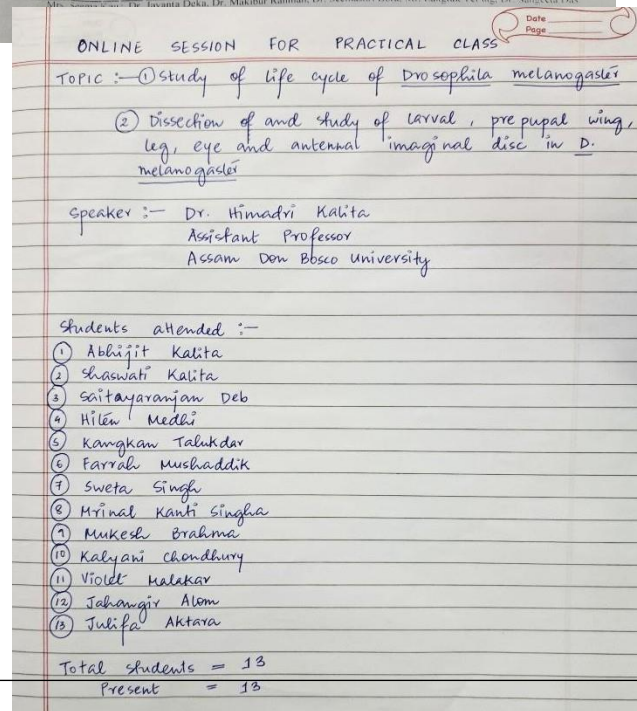 Dr. Jayanta Deka, Dr. Makibur Rahman,
Date
Page
ONLINE SESSION FOR PRACTICAL CLASS
TOPIC :— ① Study of life cycle of Drosophila melanogaster
② Dissection of and study of larval, prepupal wing,
leg, eye and antennal imaginal disc in D.
melanogaster
Speaker :— Dr. Himadri Kalita
Assistant Professor
Assam Don Bosco University
Students attended :—
① Abhijit Kalita
② Shaswati Kalita
③ Saitayaranjan Deb
④ Hilen Medhi
⑤ Kangkan Talukdar
⑥ Farrah Mushaddik
⑦ Sweta Singh
⑧ Mrinal Kanti Singha
⑨ Mukesh Brahma
⑩ Kalyani Choudhury
⑪ Violet Malakar
⑫ Jahangir Alom
⑬ Julifa Aktara
Total students = 13
Present = 13